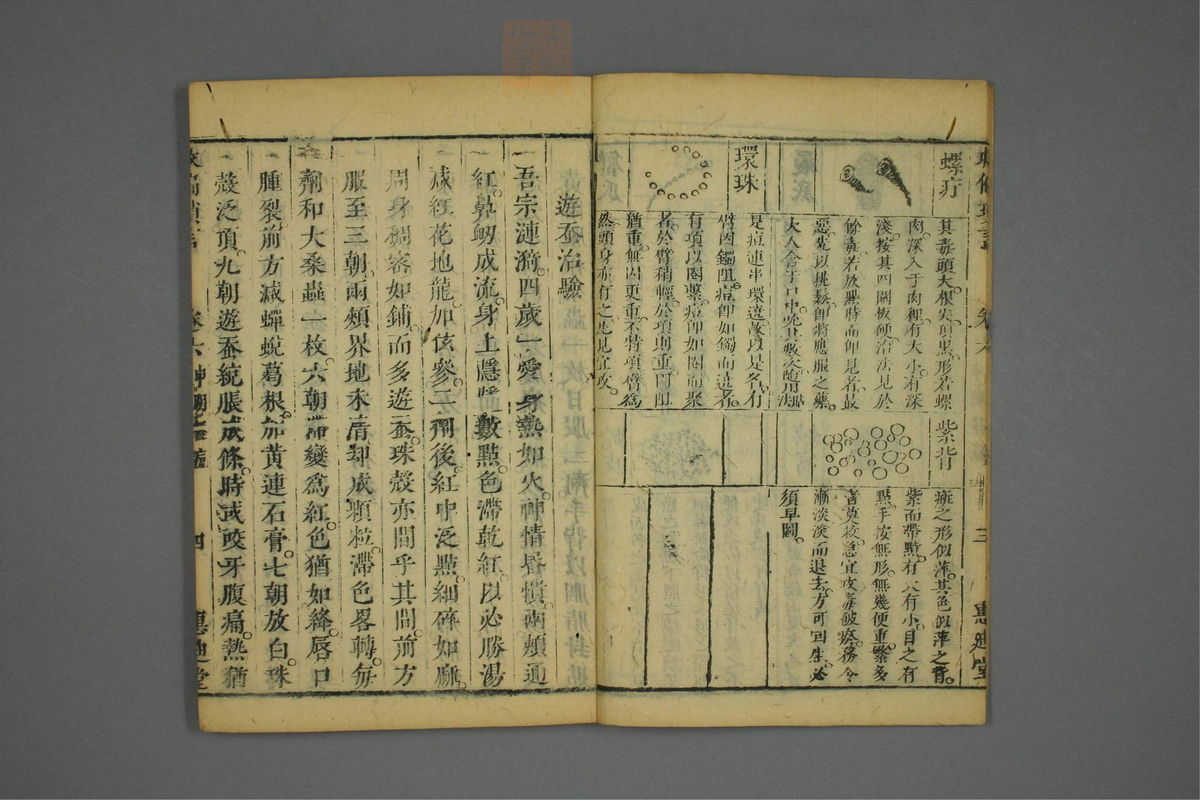 螺疔
其毒頭大根尖頂黑形若螺
肉深入于肉裡有大小有深
淺按其四圍板硬治法見於
餘毒若放點時而即見者最
惡先以挑鬆即將應服之藥
環珠
是痘連串環遶故以是名有
臂因鐲阻痘即如鐲而遶者
有項以圈繫痘即如圈而聚
者於臂稍輕於項則重因阻
猶重無因更重不特項臂爲
然頭身亦有之先見宜攻
紫背
斑之形似萍其色似萍之背
紫而帶點有大有小目之有
點手按無形無幾便重繁多
者莫救急宜攻毒鬆瘀務令
漸淡淡而退去方可回生必
須早圖
惠迪堂
遊蚕治驗
吾宗漣漪四歲一愛身熱如火神情昏憒兩頰通
紅鼻衄成流身上隱隱數點色滯乾紅以必勝湯
減紅花地龍加伭參二劑後紅中泛點細碎如麻
周身稠密如鋪而多遊蚕珠殼亦間乎其間前方
服至三朝兩頰界地未清却成顆粒滯色畧轉每
劑和大桑蟲一枚六朝滯變爲紅色猶如絳唇口
腫裂前方減蟬蛻葛根加黄連石膏七朝放白珠
殼泛頂九朝遊蚕統脹成條時或咬牙腹痛熱猶
卷六
四
惠迪堂